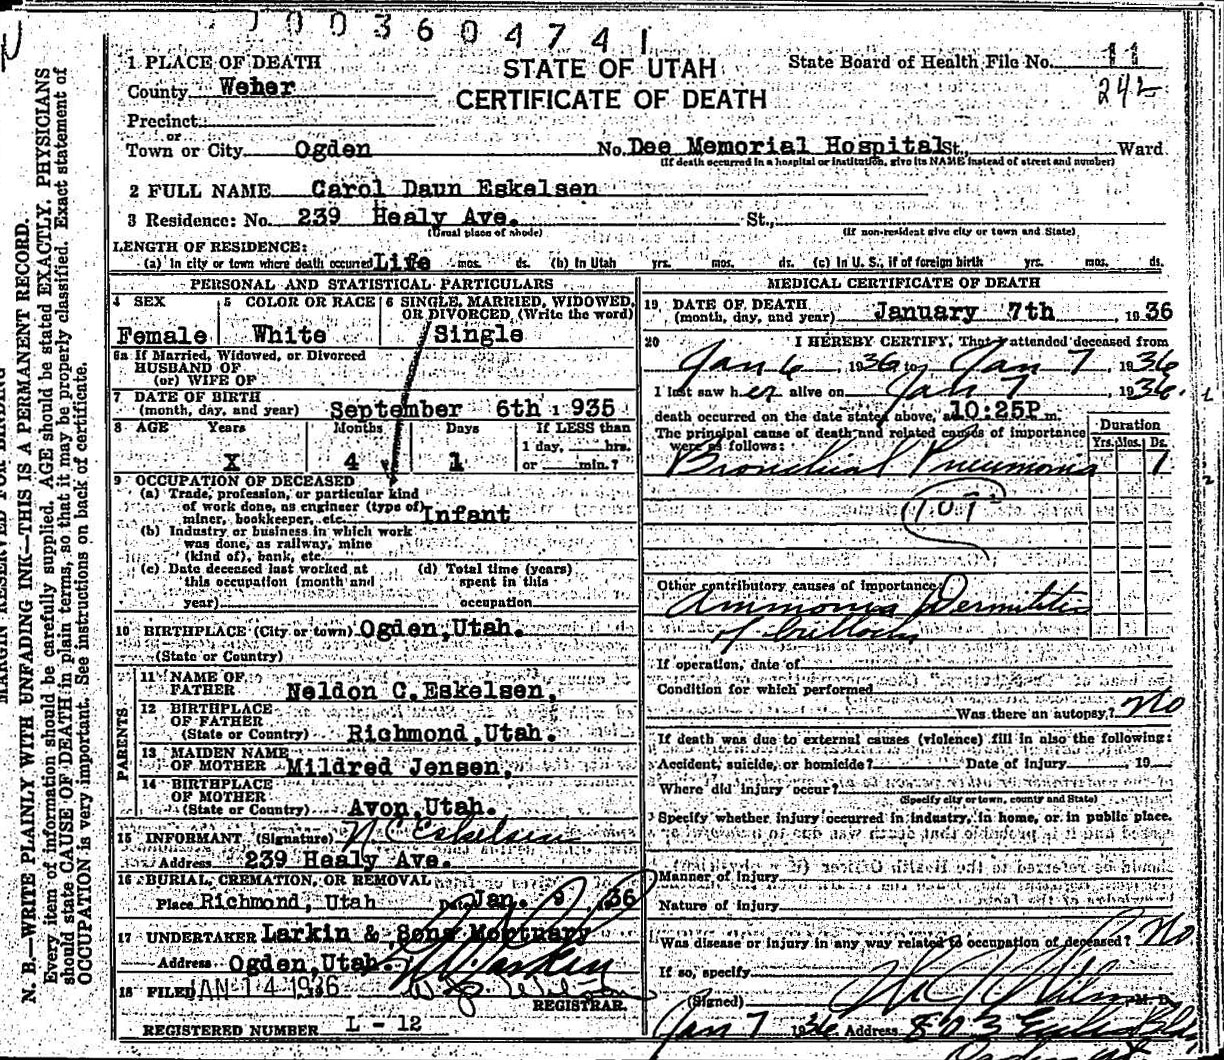 7003604741
1 PLACE OF DEATH
STATE OF UTAH
State Board of Health File No. 11
County Weber
CERTIFICATE OF DEATH
242
Precinct
or
Town or City Ogden No. Dee Memorial Hospital St., Ward
(If death occurred in a hospital or institution, give its NAME instead of street and number)
2 FULL NAME Carol Daun Eskelsen
3 Residence: No. 239 Healy Ave. St.,
(Usual place of abode) (If non-resident give city or town and State)
LENGTH OF RESIDENCE:
(a) In city or town where death occurred Life mos. ds. (b) In Utah yrs. mos. ds. (c) In U. S., if of foreign birth yrs. mos. ds.
PERSONAL AND STATISTICAL PARTICULARS
4 SEX 5 COLOR OR RACE 6 SINGLE, MARRIED, WIDOWED,
OR DIVORCED (Write the word)
Female White Single
6a If Married, Widowed, or Divorced
HUSBAND OF
(or) WIFE OF
7 DATE OF BIRTH
(month, day, and year) September 6th 1935
8 AGE Years Months Days If LESS than
1 day, hrs.
X 4 1 or min.?
9 OCCUPATION OF DECEASED
(a) Trade, profession, or particular kind
of work done, as engineer (type of)
miner, bookkeeper, etc. Infant
(b) Industry or business in which work
was done, as railway, mine
(kind of), bank, etc.
(c) Date deceased last worked at (d) Total time (years)
this occupation (month and spent in this
year) occupation
10 BIRTHPLACE (City or town) Ogden, Utah.
(State or Country)
PARENTS
11 NAME OF
FATHER Neldon C. Eskelsen,
12 BIRTHPLACE
OF FATHER
(State or Country) Richmond, Utah.
13 MAIDEN NAME
OF MOTHER Mildred Jensen,
14 BIRTHPLACE
OF MOTHER
(State or Country) Avon, Utah.
15 INFORMANT (Signature) N C Eskelsen
Address 239 Healy Ave.
16 BURIAL, CREMATION, OR REMOVAL
Place Richmond, Utah Date Jan. 9, 36
17 UNDERTAKER Larkin & Sons Mortuary
Address Ogden, Utah.
18 FILED JAN 14 1936
REGISTRAR.
REGISTERED NUMBER L - 12
MEDICAL CERTIFICATE OF DEATH
19 DATE OF DEATH
(month, day, and year) January 7th, 1936
20 I HEREBY CERTIFY, That I attended deceased from
Jan 6, 1936 to Jan 7, 1936
I last saw her alive on Jan 7, 1936.
death occurred on the date stated above, at 10:25P.m.
The principal cause of death and related causes of importance
were as follows:
Duration
Yrs. Mos. Ds.
Bronchial Pneumonia 7
107
Other contributory causes of importance:
Ammonia Dermititis
of buttocks
If operation, date of
Condition for which performed
Was there an autopsy? No
If death was due to external causes (violence) fill in also the following:
Accident, suicide, or homicide? Date of injury , 19
Where did injury occur?
(Specify city or town, county and State)
Specify whether injury occurred in industry, in home, or in public place.
Manner of injury
Nature of injury
Was disease or injury in any way related to occupation of deceased? No
If so, specify
(Signed) M. D.
Jan 7 1936 Address
MARGIN RESERVED FOR BINDING
N. B.—WRITE PLAINLY WITH UNFADING INK—THIS IS A PERMANENT RECORD.
Every item of information should be carefully supplied. AGE should be stated EXACTLY. PHYSICIANS
should state CAUSE OF DEATH in plain terms, so that it may be properly classified. Exact statement of
OCCUPATION is very important. See instructions on back of certificate.